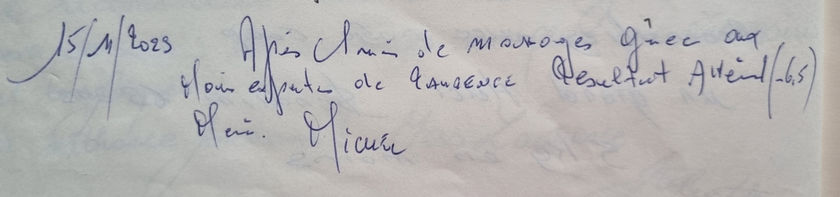 15/11/2023 Après 1 mois de massages grâce aux
Mains expertes de LAURENCE Résultat Atteint (-6,5)
Merci. Michel